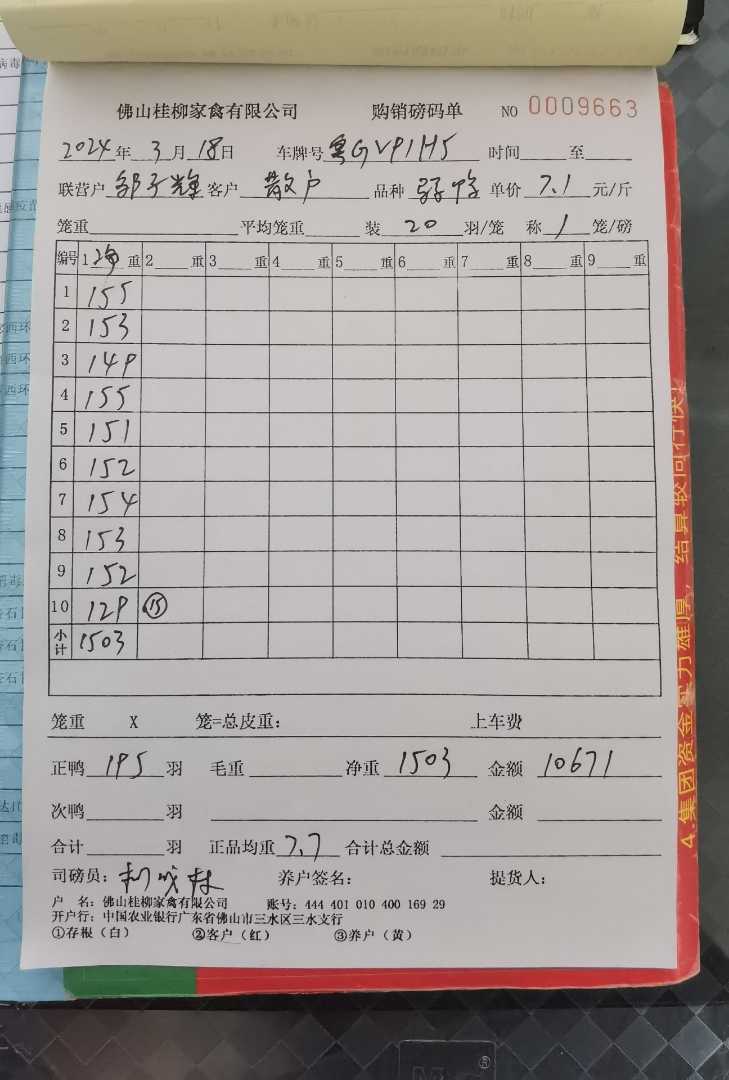 佛山桂柳家禽有限公司 购销磅码单 NO 0009663
2024年 3月 18日 车牌号 粤GVP1H5 时间 至
联营户 邹子辉 客户 散户 品种 单价 7.1 元/斤
笼重 平均笼重 装 20 羽/笼 称 1 笼/磅
编号 1 净 重 2 重 3 重 4 重 5 重 6 重 7 重 8 重 9 重
1 155
2 153
3 149
4 155
5 151
6 152
7 154
8 153
9 152
10 129 ⑮
小计 1503
笼重 X 笼=总皮重: 上车费
正鸭 195 羽 毛重 净重 1503 金额 10671
次鸭 羽 金额
合计 羽 正品均重 7.7 合计总金额
司磅员: 养户签名: 提货人:
户 名: 佛山桂柳家禽有限公司 账号: 444 401 010 400 169 29
开户行: 中国农业银行广东省佛山市三水区三水支行
①存根（白） ②客户（红） ③养户（黄）
4.集团资金实力雄厚, 结算较同行快